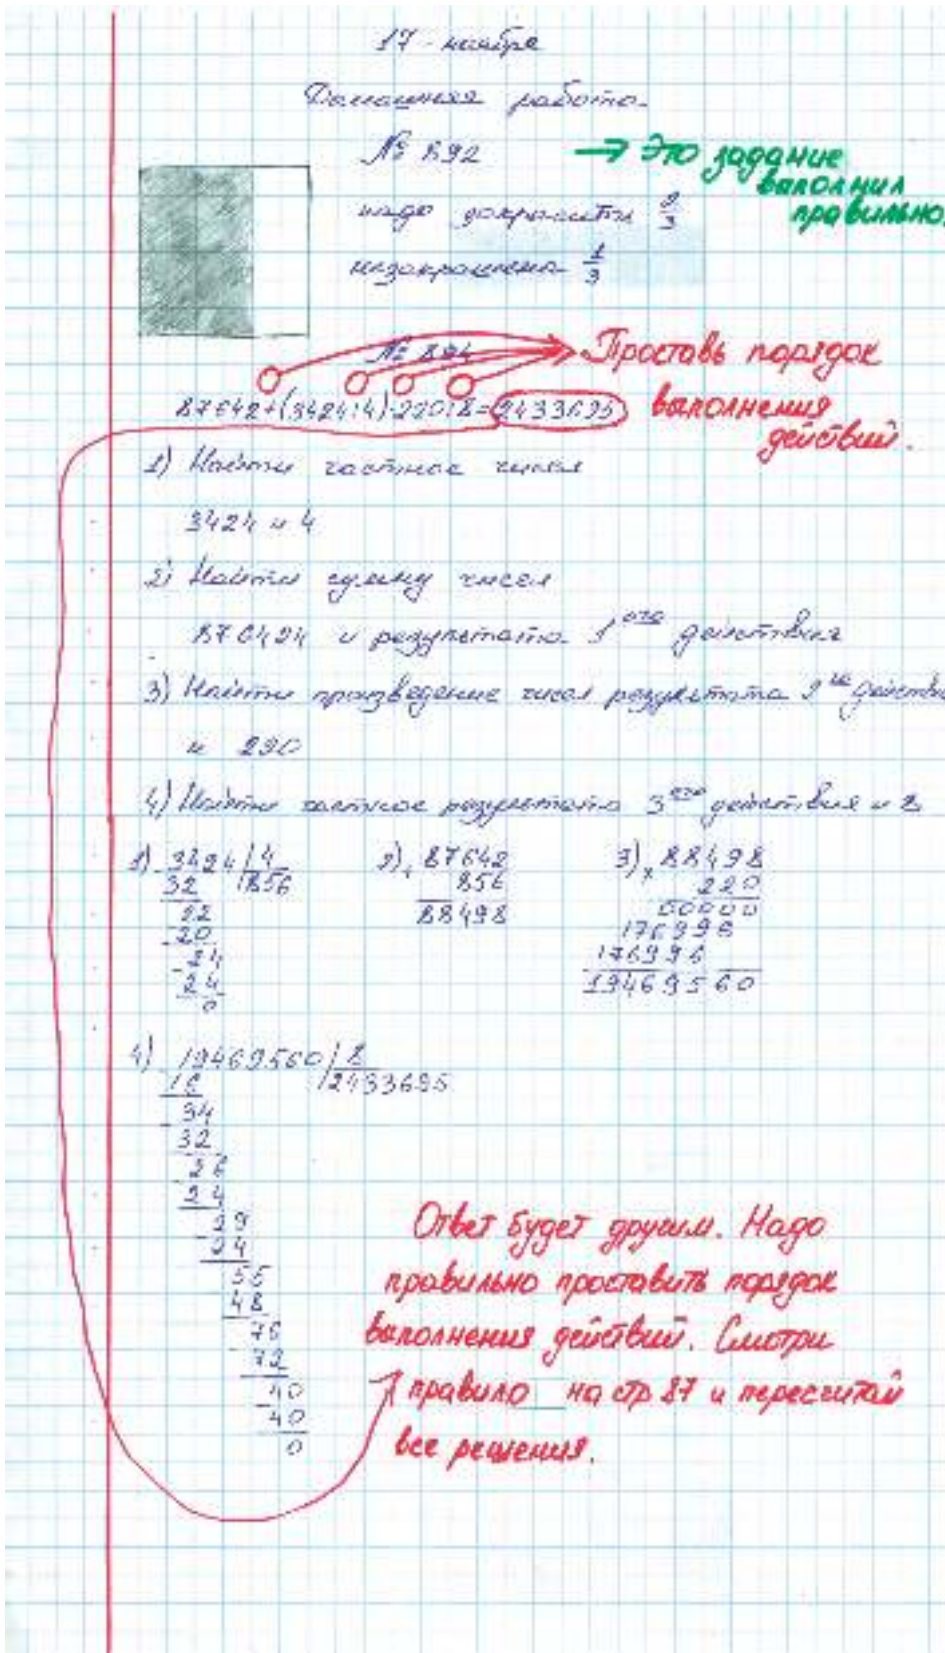 17 ноября
Домашняя работа.
№ 892
→ Это задание
выполнил
правильно.
надо докрасить 2/3
незакрашена 1/3
№ 894
Проставь порядок
выполнения
действий.
87642+(3424:4)·220:8=2433695
1) Найти частное чисел
3424 и 4
2) Найти сумму чисел
и результата 1ого действия
3) Найти произведение чисел результата 2 действия
и 220
4) Найти частное результата 3его действия и 8
1) 3424 | 4
32 856
22
20
24
24
0
2) + 87642
856
88498
3) × 88498
220
00000
176996
176996
19469560
4) 19469560 | 8
16 2433695
34
32
26
24
29
24
55
48
76
72
40
40
0
Ответ будет другим. Надо
правильно проставить порядок
выполнения действий. Смотри
правило на стр 87 и пересчитай
все решения.